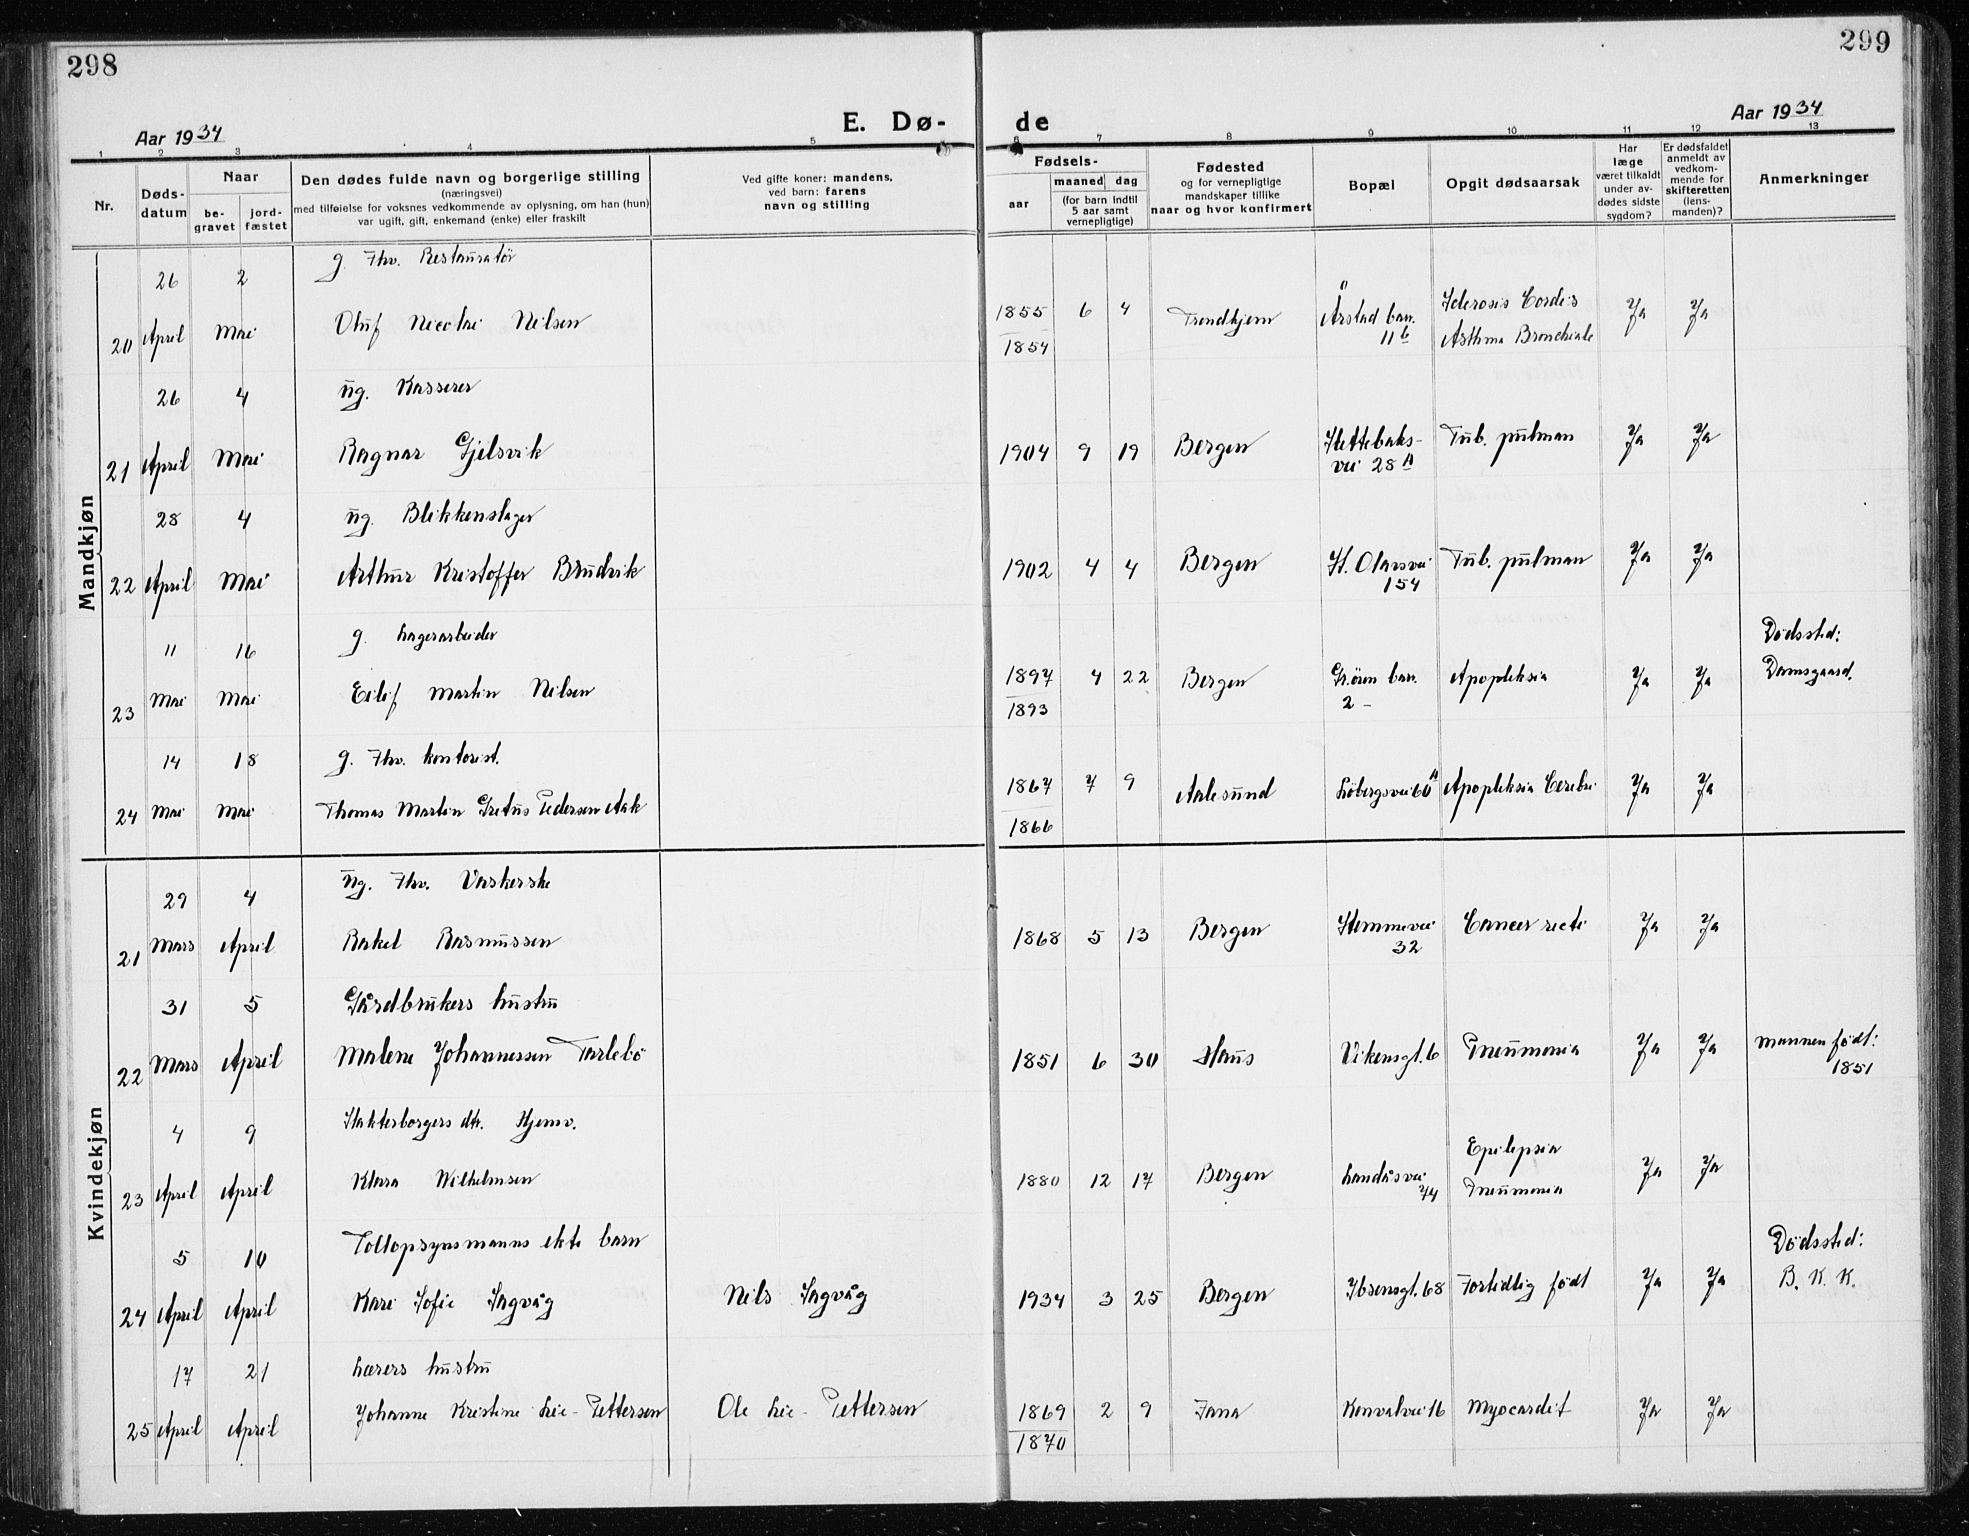 298
299
E. Dø-
de
Aar 1934
Aar 1934
1 2 3 4 5 6 7 8 9 10 11 12 13
Nr.
Døds-
datum
Naar
be-
gravet
jord-
fæstet
Den dødes fulde navn og borgerlige stilling
(næringsvei)
med tilføielse for voksnes vedkommende av oplysning, om han (hun)
var ugift, gift, enkemand (enke) eller fraskilt
Ved gifte koner: mandens,
ved barn: farens
navn og stilling
Fødsels-
aar
maaned dag
(for barn indtil
5 aar samt
vernepligtige)
Fødested
og for vernepligtige
mandskaper tillike
naar og hvor konfirmert
Bopæl
Opgit dødsaarsak
Har
læge
været tilkaldt
under av-
dødes sidste
sygdom?
Er dødsfaldet
anmeldt av
vedkom-
mende for
skifteretten
(lens-
manden)?
Anmerkninger
Mandkjøn
26 2 g. Fhv. Restauratør
20 April Mai Oluf Nicolai Nilsen 1855 6 4 Trondhjem Årstad ban. Sclerosis Cordis Ja Ja
1854 11 b Asthma Bronchiale
26 4 ug. Kasserer
21 April Mai Ragnar Gjelsvik 1904 9 19 Bergen Slettebaks- Tub. pulman Ja Ja
vei 28 A
28 4 ug. Blikkenslager
22 April Mai Arthur Kristoffer Brudvik 1902 4 4 Bergen St. Olavsvei Tub. pulman Ja Ja
154
11 16 g. Lagerarbeider Dødssted:
23 Mai Mai Eilif Martin Nilsen 1897 4 22 Bergen ban. Apopleksia Ja Ja Damsgaard.
1893 2 -
14 18 g. Fhv. kontorist.
24 Mai Mai Thomas Martin Gretus Pedersen Aak 1867 7 9 Aalesund Løbergsvei 60 A Apopleksia Cerebri Ja Ja
1866
Kvindekjøn
29 4 ug. Fhv. Vaskerske
21 Mars April Rakel Rasmussen 1868 5 13 Bergen Stemmevei Cancer recti Ja Ja
32
31 5 Gårdbrukers hustru
22 Mars April Malene Johannessen Tarlebø 1851 6 30 Haus Vikensgt. 6 Pneumonia Ja Ja Mannen født:
1851
4 9 Slakterborgers dtr. Hjemv. Epilepsia
23 April April Klara Wilhelmsen 1880 12 17 Bergen Landåsvei Pneumonia Ja Ja
74
5 10 Tollopsynsmanns ekte barn Dødssted:
24 April April Kari Sofie Sagvåg Nils Sagvåg 1934 3 25 Bergen Ibsensgt. 68 Fortidlig født Ja Ja B. K. K.
17 21 Lærers hustru
25 April April Johanne Kristine Lie-Pettersen Ole Lie-Pettersen 1869 2 9 Fana Konvalvei 16 Myocardit Ja Ja
1870